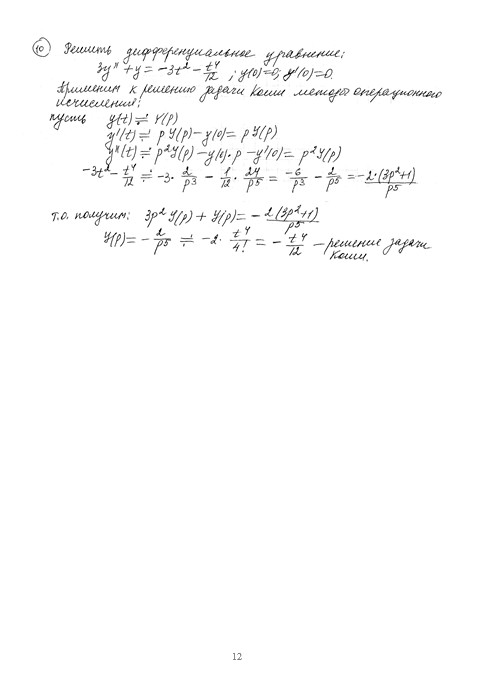 10 Решить дифференциальное уравнение:
3y'' + y = -3t² - t⁴/12 ; y(0)=0; y'(0)=0.
Применим к решению задачи Коши методы операционного
исчисления:
пусть y(t) ≓ Y(p)
y'(t) ≓ pY(p) - y(0) = pY(p)
y''(t) ≓ p²Y(p) - y(0)·p - y'(0) = p²Y(p)
-3t² - t⁴/12 ≓ -3·2/p³ - 1/12·24/p⁵ = -6/p³ - 2/p⁵ = -2·(3p²+1)/p⁵
т.о. получим: 3p²Y(p) + Y(p) = - 2(3p²+1)/p⁵
Y(p) = - 2/p⁵ ≓ -2· t⁴/4! = - t⁴/12 – решение задачи
Коши.
12